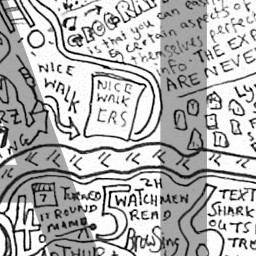 GEOGRAP
is that you can eas
& certain aspects of
themselves perfect
info. THE EXP
ARE NEVE
NICE
WALK
NICE
WALK
ERS
LY
7
TURNED
IT ROUND
MAMA
5
2H
WATCHMEN
READ
BROWSING
TEXT
SHARK
OUTSI
TRE
34.
ARTHUR